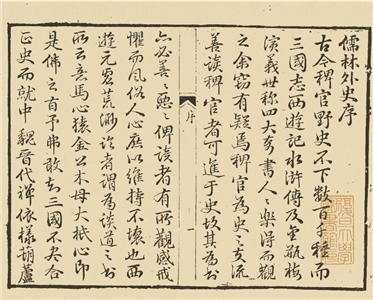 儒林外史序
古今稗官野史不下數百千種而
三國志西遊記水滸傳及金瓶梅
演義世稱四大奇書人人樂得而觀
之余竊有疑焉稗官為史之支流
善讀稗官者可進于史故其為書
亦必善善惡惡俾讀者有所觀感戒
懼而風俗人心庶以維持不壞也西
遊元虛荒渺論者謂為談道之書
所云意馬心猿金公木母大抵心即
是佛之旨予弗敢知三國不盡合
正史而就中魏晉代禪依樣葫蘆
序